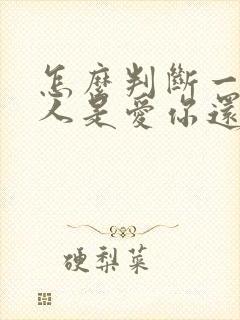 怎麼判斷一
人是愛你還
硬梨菜